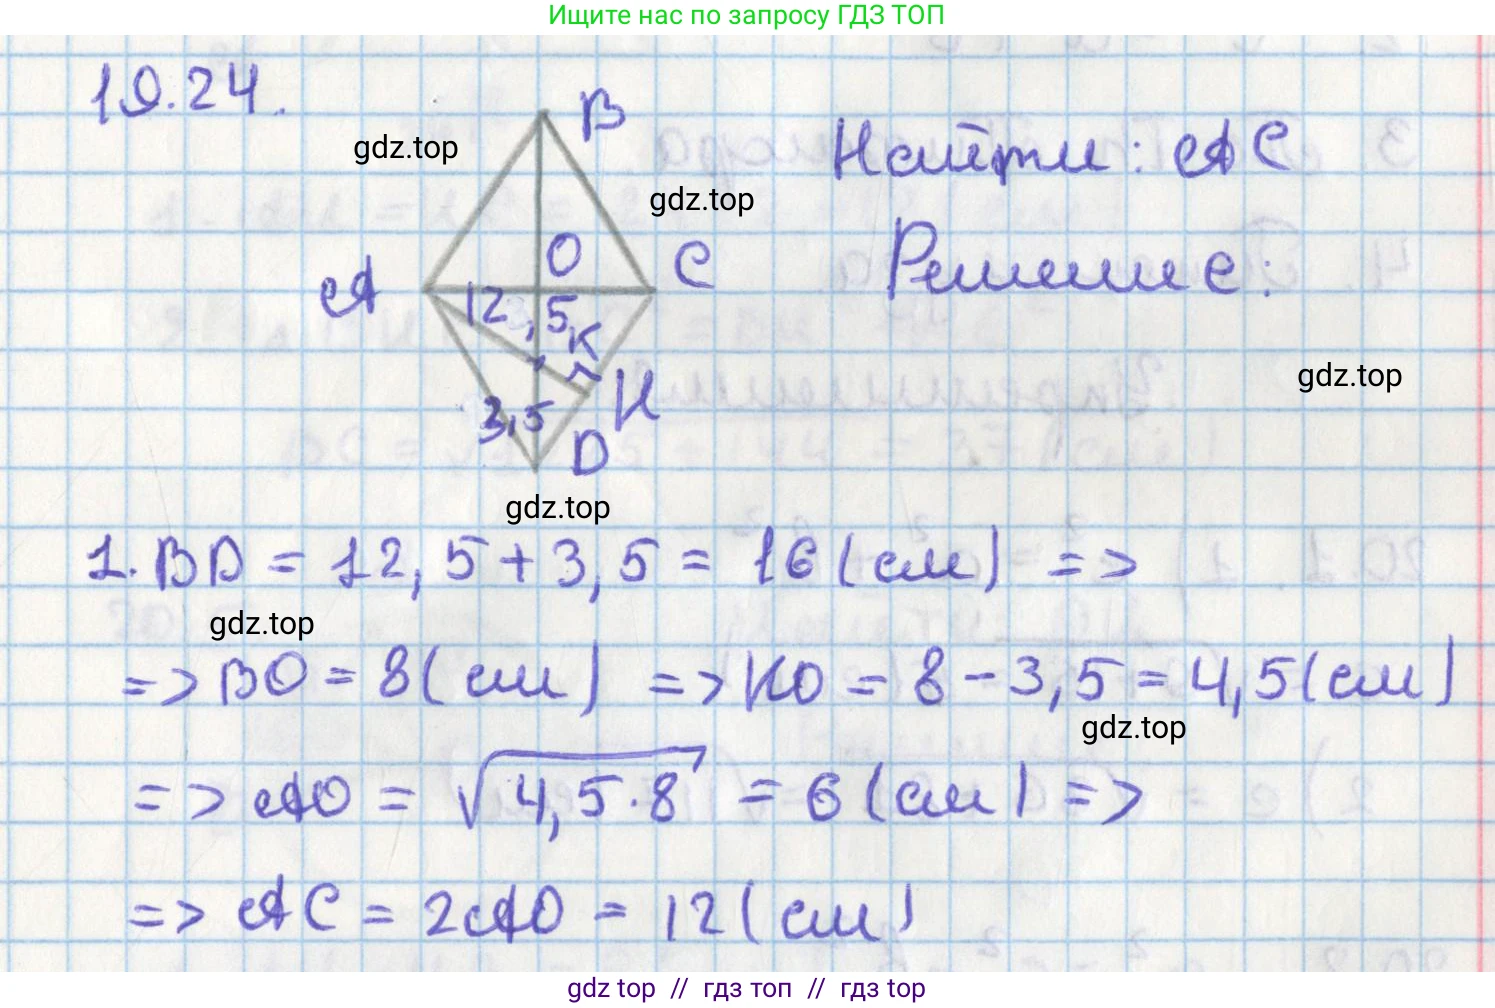 Ищите нас по запросу ГДЗ ТОП
19.24.
B
gdz.top
Найти: AC
gdz.top
O
C
A
Решение:
12,5
K
gdz.top
H
3,5
D
gdz.top
1. BD = 12,5 + 3,5 = 16 (см) =>
gdz.top
=> BO = 8 (см) => KO = 8 - 3,5 = 4,5 (см)
gdz.top
=> AO = √4,5·8 = 6 (см) =>
=> AC = 2AO = 12 (см)
gdz top // гдз топ // гдз top